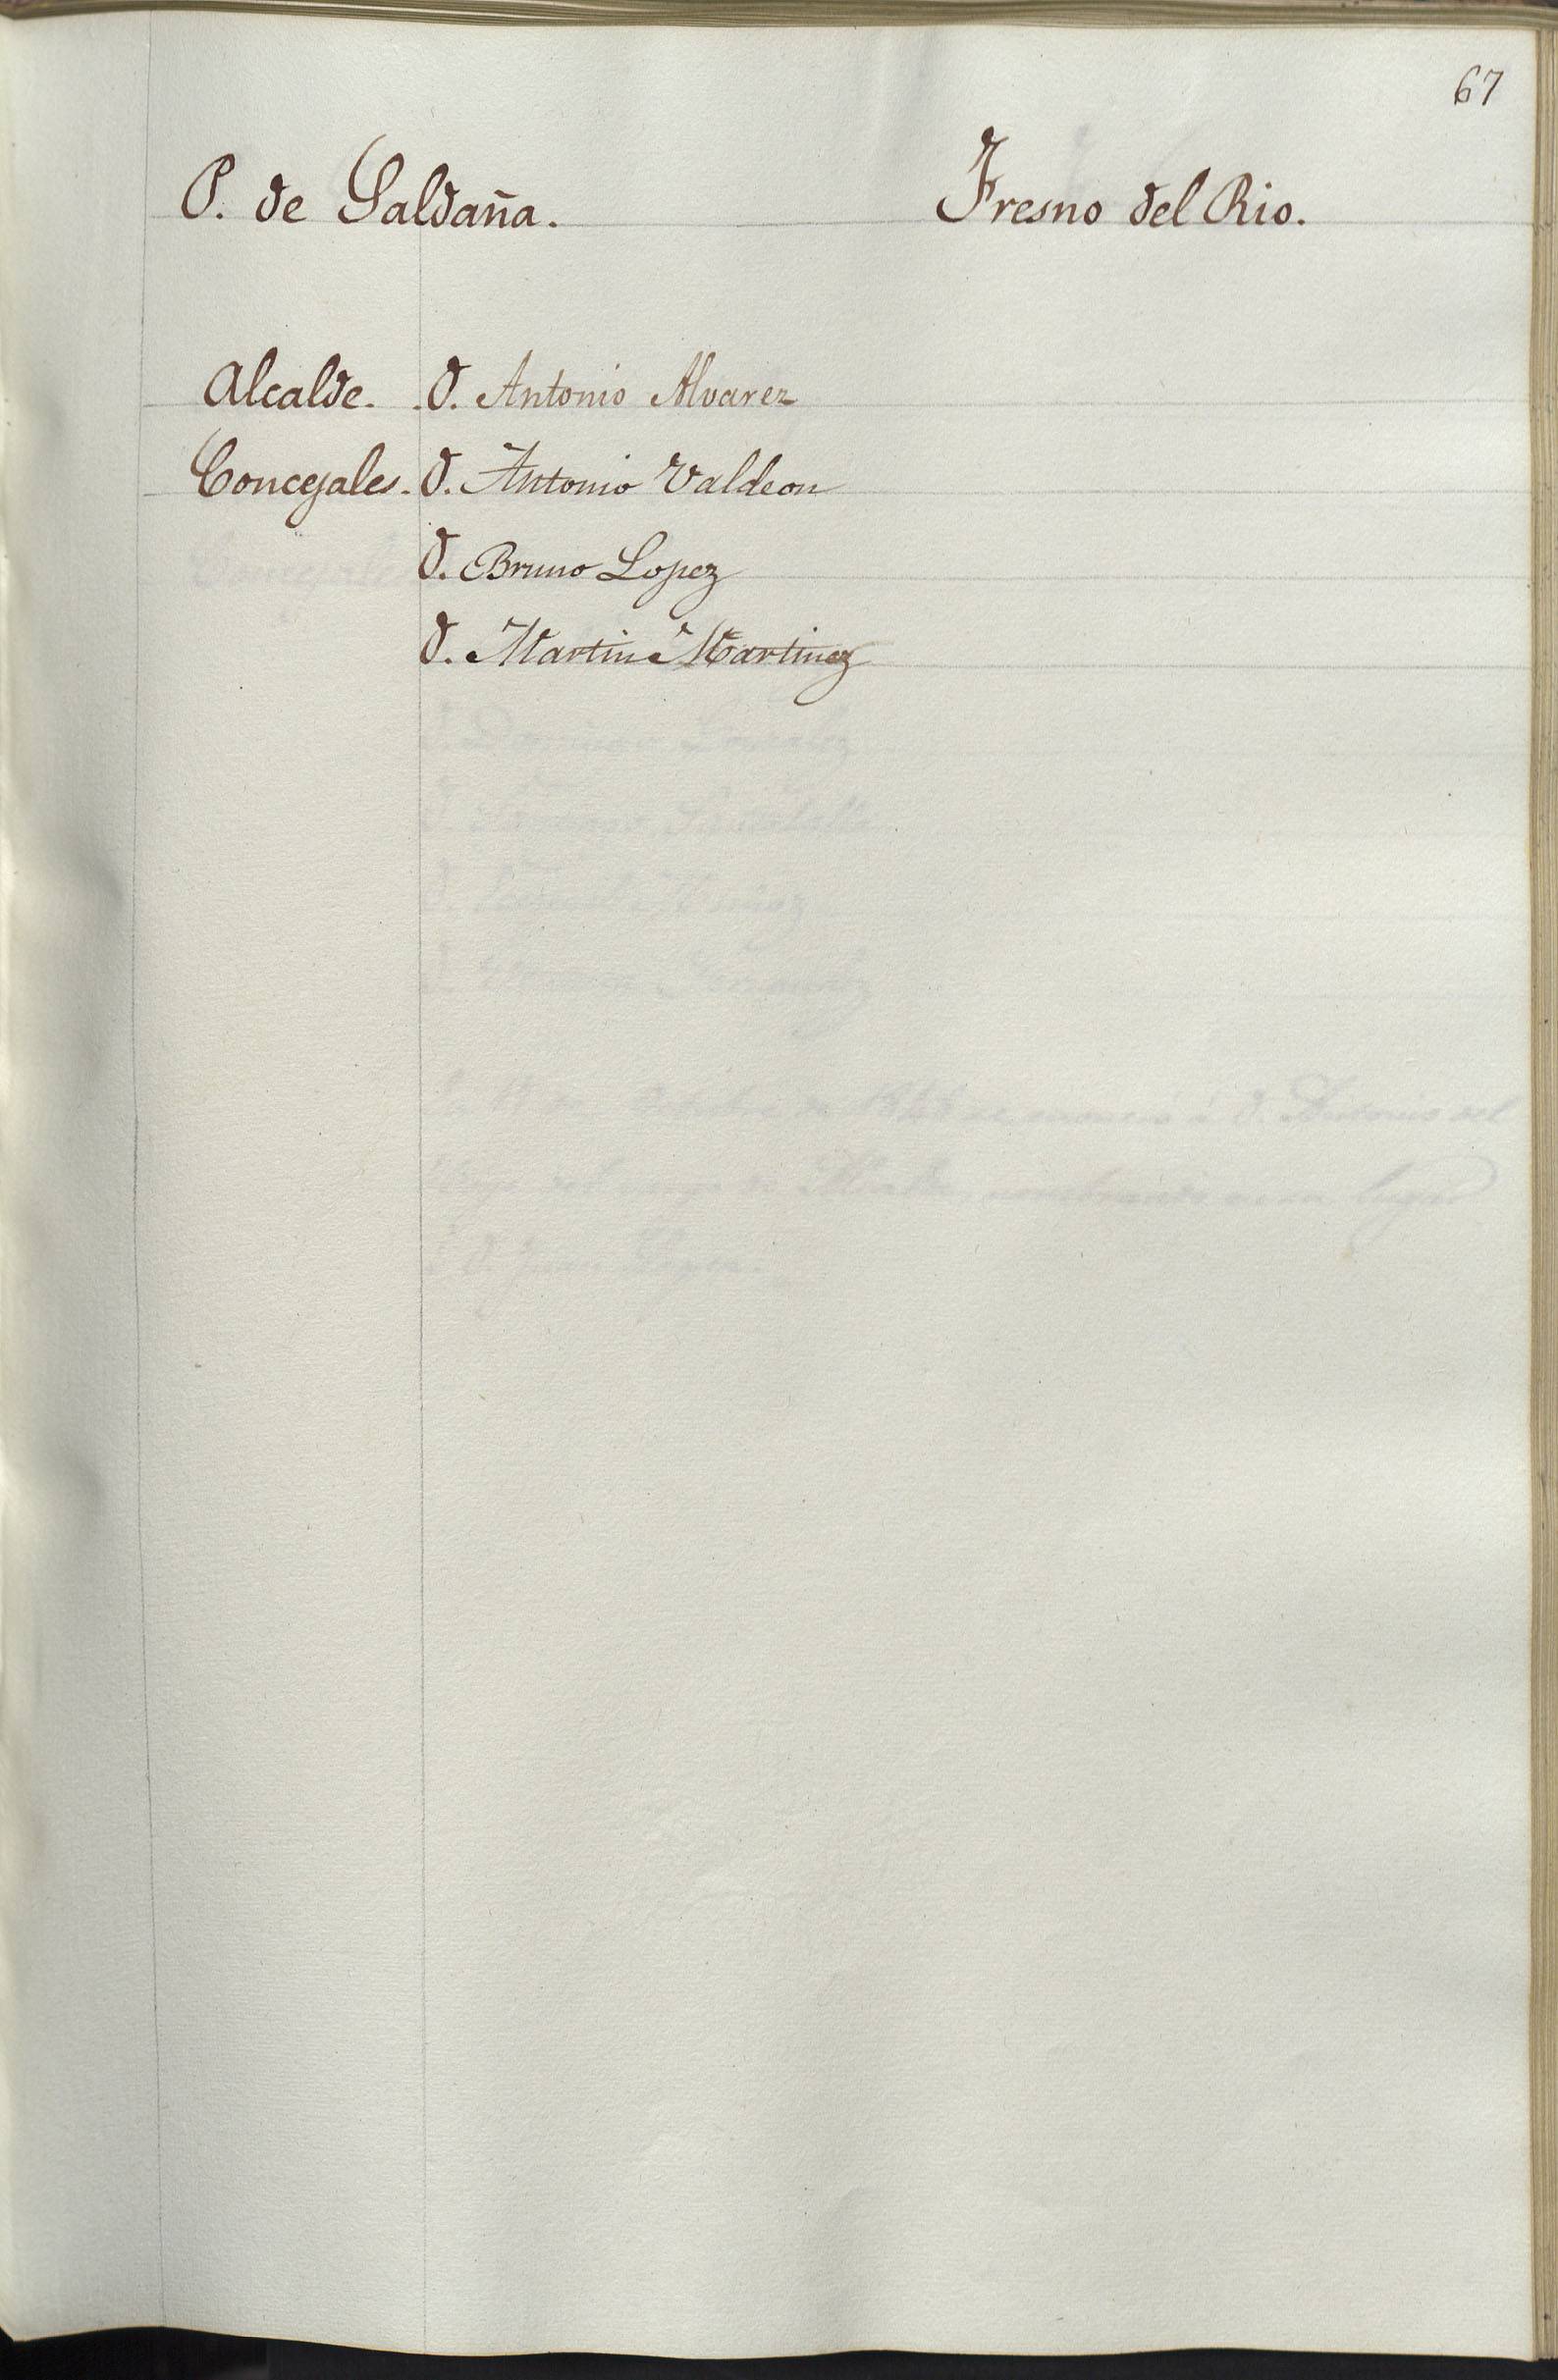 67
P. de Saldaña. Fresno del Rio.
Alcalde. D. Antonio Alvarez
Concejales. D. Antonio Valdeon
D. Bruno Lopez
D. Martin Martinez